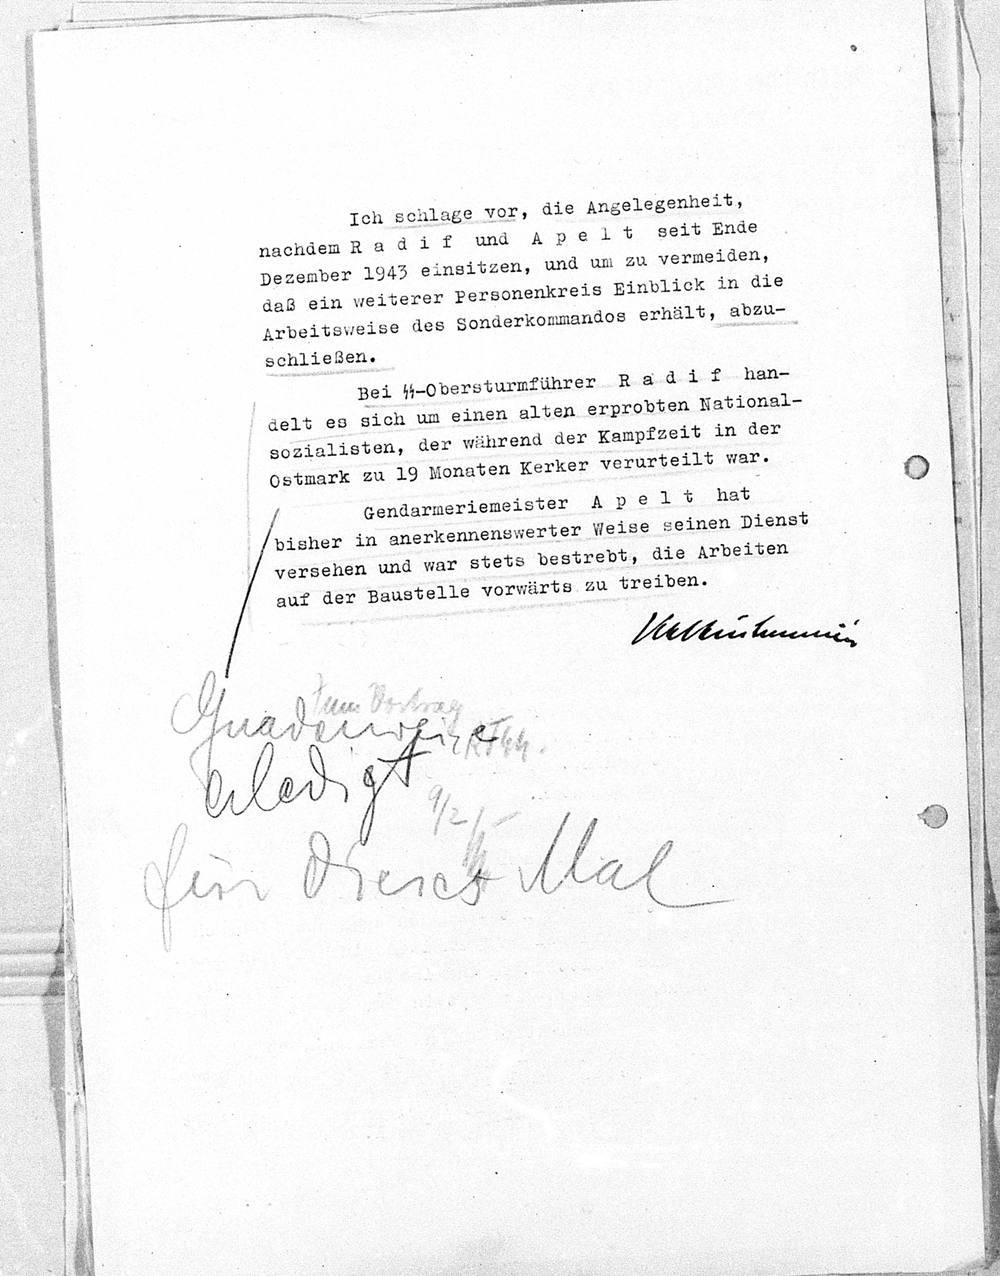 Ich schlage vor, die Angelegenheit,
nachdem R a d i f und A p e l t seit Ende
Dezember 1943 einsitzen, und um zu vermeiden,
daß ein weiterer Personenkreis Einblick in die
Arbeitsweise des Sonderkommandos erhält, abzu-
schließen.
Bei ᛋᛋ-Obersturmführer R a d i f han-
delt es sich um einen alten erprobten National-
sozialisten, der während der Kampfzeit in der
Ostmark zu 19 Monaten Kerker verurteilt war.
Gendarmeriemeister A p e l t hat
bisher in anerkennenswerter Weise seinen Dienst
versehen und war stets bestrebt, die Arbeiten
auf der Baustelle vorwärts zu treiben.
Zum Vortrag
RFᛋᛋ.
erledigt
9/2
für dieses Mal